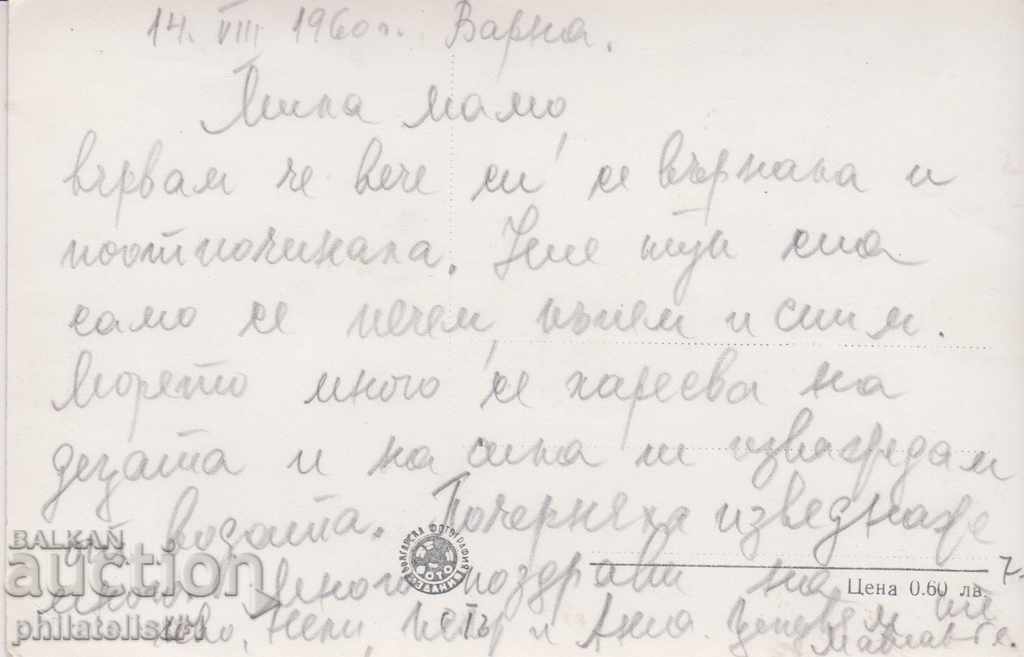 14. VIII 1960 г. Варна.
Мила мамо,
вървам че вече си се върнала и
поотпочинала. Ние тук сма
само се печем, къпем и спим.
Морето много се харесва на
децата и на сила ги изваждам
от водата. Почерняха изведнаж
много. Много поздрави на
Нели, Петър и Ана. Целувам ви
Цена 0.60 лв.
7.
БЪЛГАРСКА ФОТОГРАФИЯ
ФОТО
BALKAN
auction
philatelist61